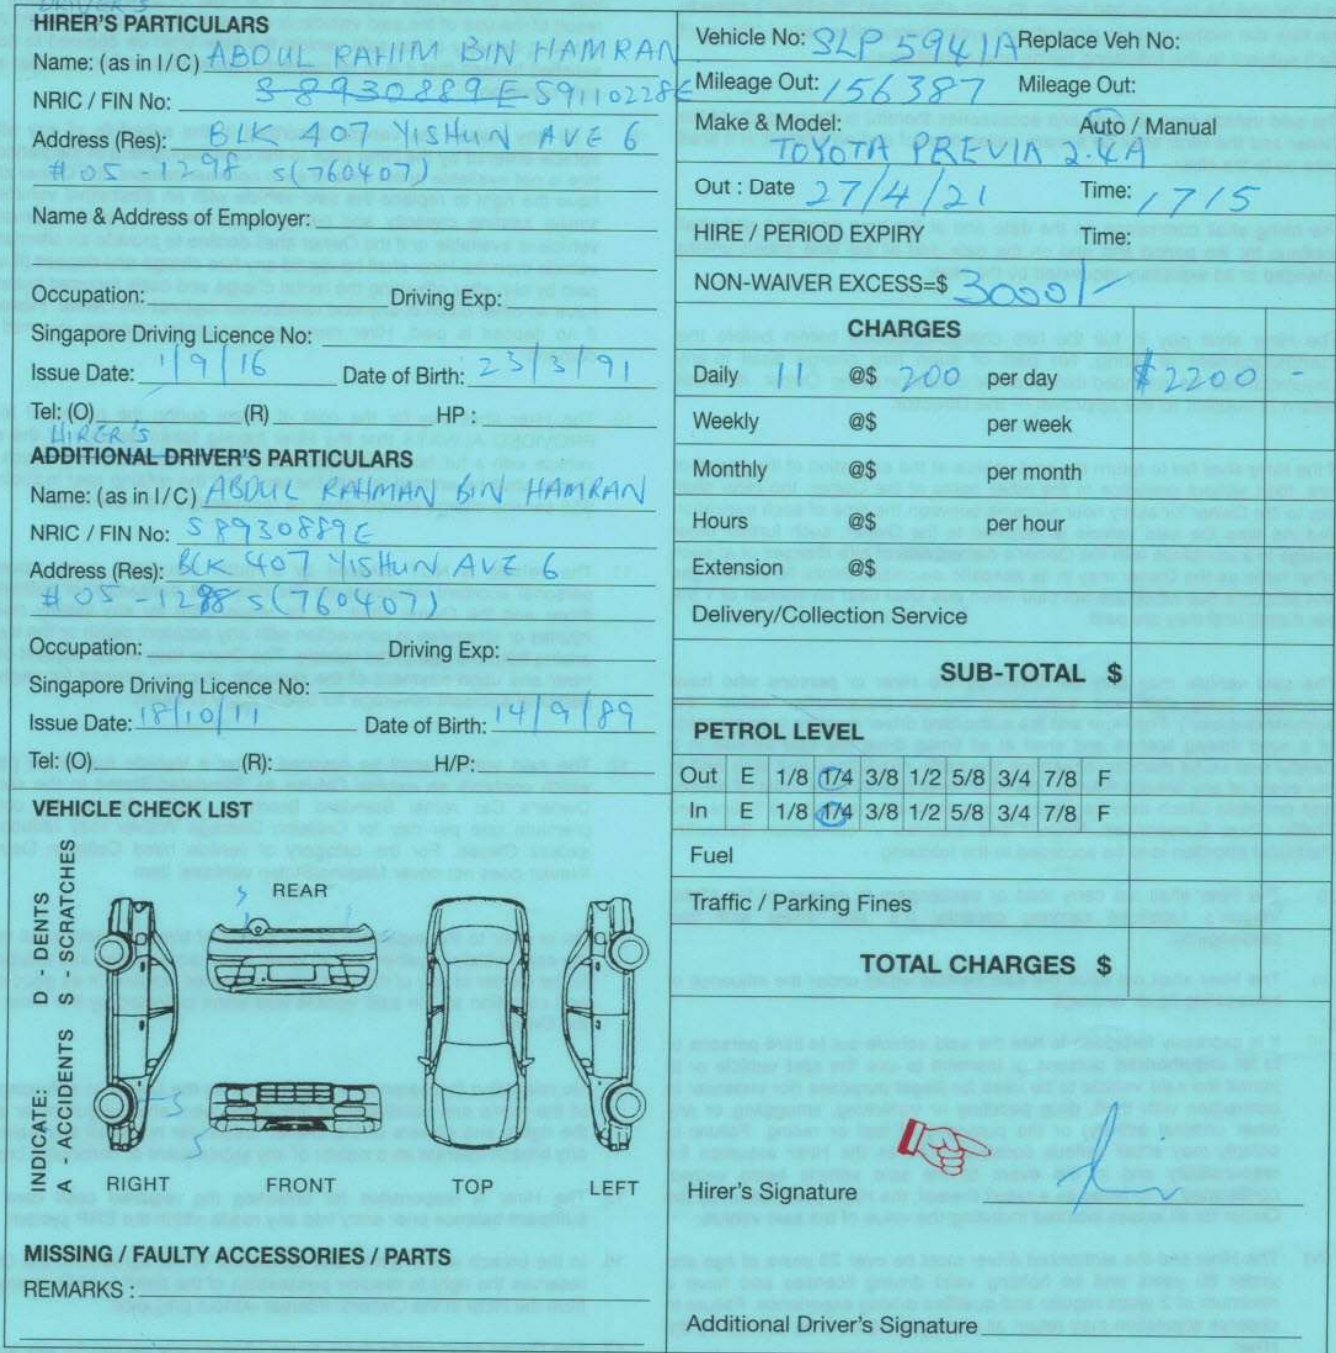 DRIVER'S
HIRER'S PARTICULARS
Name: (as in I/C) ABDUL RAHIM BIN HAMRAN
NRIC / FIN No: S8930889E S9110228E
Address (Res): BLK 407 YISHUN AVE 6
#05-1298 S(760407)
Name & Address of Employer:
Occupation: Driving Exp:
Singapore Driving Licence No:
Issue Date: 1/9/16 Date of Birth: 23/3/91
Tel: (O) (R) HP :
HIRER'S
ADDITIONAL DRIVER'S PARTICULARS
Name: (as in I/C) ABDUL RAHMAN BIN HAMRAN
NRIC / FIN No: S8930889E
Address (Res): BLK 407 YISHUN AVE 6
#05-1298 S(760407)
Occupation: Driving Exp:
Singapore Driving Licence No:
Issue Date: 18/10/11 Date of Birth: 14/9/89
Tel: (O) (R): H/P:
VEHICLE CHECK LIST
INDICATE: D - DENTS
A - ACCIDENTS S - SCRATCHES
REAR
RIGHT FRONT TOP LEFT
MISSING / FAULTY ACCESSORIES / PARTS
REMARKS :
Vehicle No: SLP5941A Replace Veh No:
Mileage Out: 156387 Mileage Out:
Make & Model: Auto / Manual
TOYOTA PREVIA 2.4A
Out : Date 27/4/21 Time: 1715
HIRE / PERIOD EXPIRY Time:
NON-WAIVER EXCESS=$ 3000/-
CHARGES
Daily 11 @$ 200 per day $2200 -
Weekly @$ per week
Monthly @$ per month
Hours @$ per hour
Extension @$
Delivery/Collection Service
SUB-TOTAL $
PETROL LEVEL
Out E 1/8 1/4 3/8 1/2 5/8 3/4 7/8 F
In E 1/8 1/4 3/8 1/2 5/8 3/4 7/8 F
Fuel
Traffic / Parking Fines
TOTAL CHARGES $
Hirer's Signature
Additional Driver's Signature